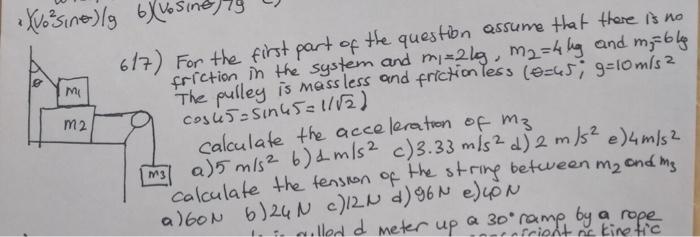 (V₀²sinθ)/g b)(V₀sinθ)
6/7) For the first part of the question assume that there is no
friction in the system and m₁=2kg, m₂=4kg and m₃=6kg
The pulley is massless and frictionless (θ=45; g=10m/s²
cos45=sin45=1/√2)
θ
m₁
m2
m3
calculate the acceleration of m₃
a)5 m/s² b)1m/s² c)3.33 m/s² d)2 m/s² e)4m/s²
calculate the tension of the string between m₂ and m₃
a)60N b)24N c)12N d)96N e)40N
d meter up a 30° ramp by a rope
of kinetic